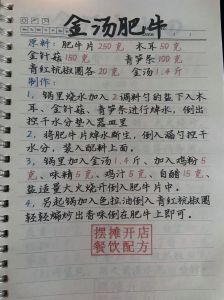 金汤肥牛
原料：肥牛片250克 木耳50克
金针菇150克 青笋条100克
青红杭椒圈各20克 金汤1.4斤
制作：
1、锅里烧水加入2调料勺的盐下入木
耳、金针菇、青笋条进行焯水，倒出
控干水分垫入器皿里
2、将肥牛片焯水断生，倒入漏勺控干
水分，装入配料上面
3、锅里加入金汤1.4斤、加入鸡粉5
克、味精5克、鸡汁5克、白醋15克、
盐适量大火烧开倒入肥牛片中
4、另起锅加入色拉油倒入青红杭椒圈
轻轻煸炒出香味倒在肥牛上即可。
摆摊开店
餐饮配方